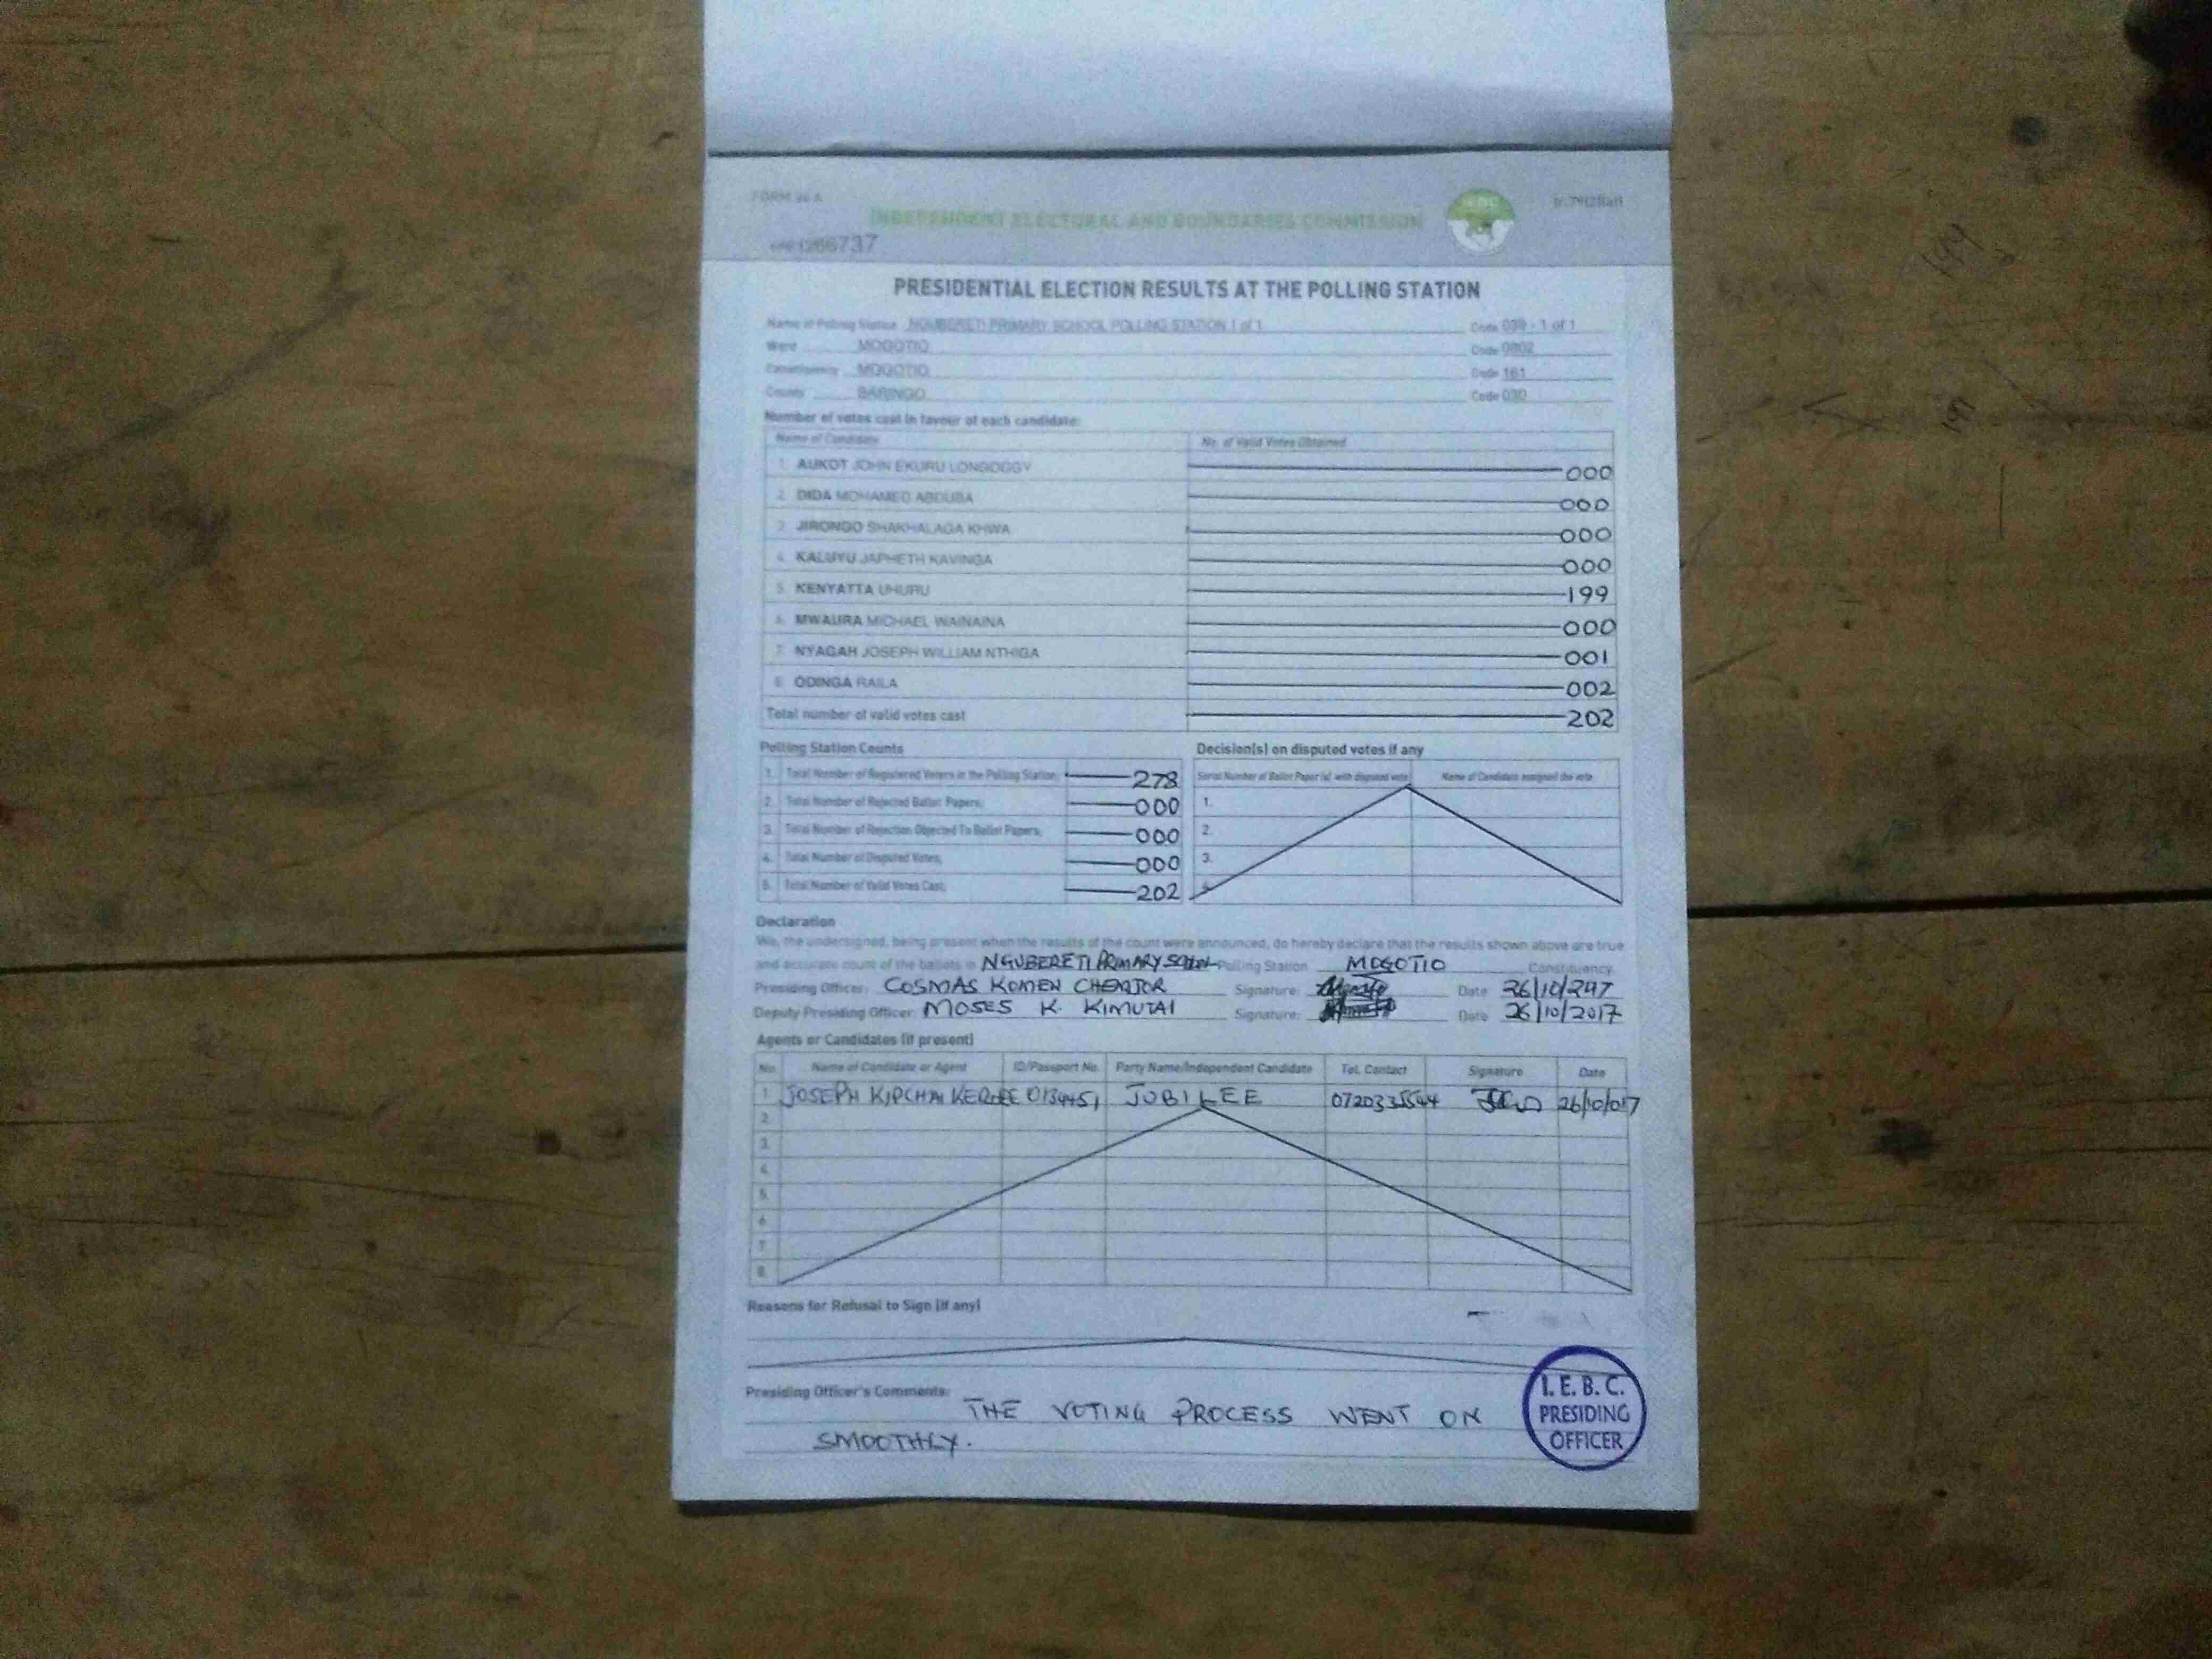 FORM 34 A
INDEPENDENT ELECTORAL AND BOUNDARIES COMMISSION
PRESIDENTIAL ELECTION RESULTS AT THE POLLING STATION
Name of Polling Station NGUBERETI PRIMARY SCHOOL POLLING STATION 1 of 1 Code 039 - 1 of 1
Ward MOGOTIO Code 0802
Constituency MOGOTIO Code 161
County BARINGO Code 030
Number of votes cast in favour of each candidate:
Name of Candidate No. of Valid Votes Obtained
1. AUKOT JOHN EKURU LONGOGGY 000
2. DIDA MOHAMED ABDUBA 000
3. JIRONGO SHAKHALAGA KHWA 000
4. KALUYU JAPHETH KAVINGA 000
5. KENYATTA UHURU 199
6. MWAURA MICHAEL WAINAINA 000
7. NYAGAH JOSEPH WILLIAM NTHIGA 001
8. ODINGA RAILA 002
Total number of valid votes cast 202
Polling Station Counts
1. Total Number of Registered Voters in the Polling Station 278
2. Total Number of Rejected Ballot Papers; 000
3. Total Number of Rejection Objected To Ballot Papers; 000
4. Total Number of Disputed Votes; 000
5. Total Number of Valid Votes Cast; 202
Decision(s) on disputed votes if any
Serial Number of Ballot Paper(s) with disputed vote Name of Candidate assigned the vote
1.
2.
3.
Declaration
We, the undersigned, being present when the results of the count were announced, do hereby declare that the results shown above are true
and accurate count of the ballots in NGUBERETI PRIMARY SCHOOL Polling Station MOGOTIO Constituency
Presiding Officer: COSMAS KOMEN Signature: Date
Deputy Presiding Officer: MOSES K. KIMUTAI Signature: Date 26/10/2017
Agents or Candidates (if present)
No. Name of Candidate or Agent ID/Passport No. Party Name/Independent Candidate Tel. Contact Signature Date
1. JOSEPH JUBILEE
2.
3.
4.
5.
6.
7.
8.
Reasons for Refusal to Sign (if any)
Presiding Officer's Comments: THE VOTING PROCESS WENT ON
SMOOTHLY.
I. E. B. C.
PRESIDING
OFFICER